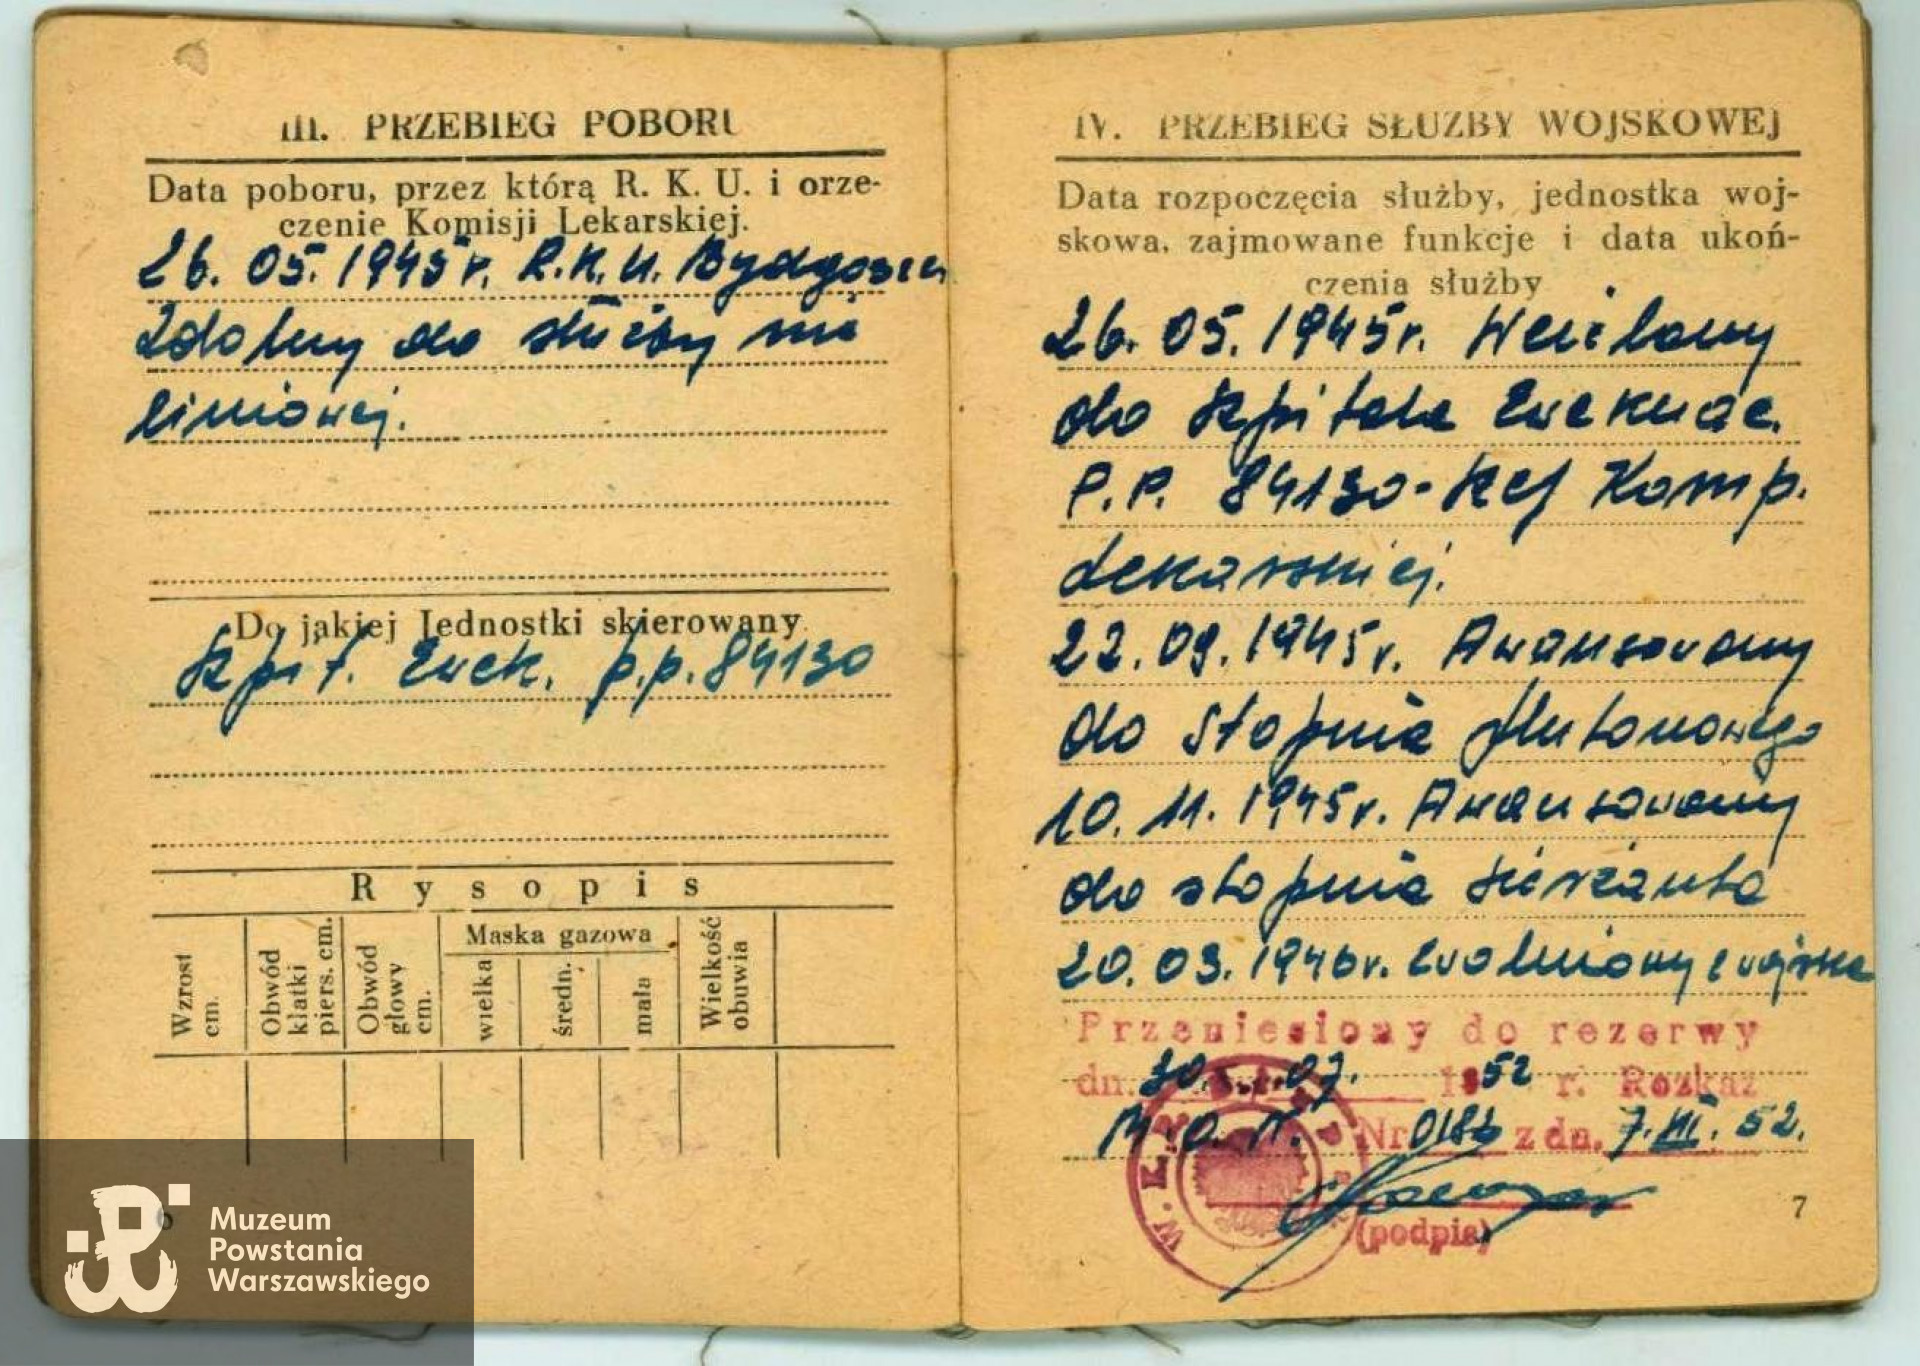 III. PRZEBIEG POBORU
Data poboru, przez którą R. K. U. i orze-
czenie Komisji Lekarskiej.
26. 05. 1945 r. R.K.U. Bydgoszcz
Zdolny do służby nie
liniowej.
Do jakiej Jednostki skierowany
Szpit. Ewak. p.p. 84130
Rysopis
Wzrost cm.
Obwód klatki piers. cm.
Obwód głowy cm.
Maska gazowa
wielka
średn.
mała
Wielkość obuwia
6
IV. PRZEBIEG SŁUŻBY WOJSKOWEJ
Data rozpoczęcia służby, jednostka woj-
skowa, zajmowane funkcje i data ukoń-
czenia służby
26. 05. 1945r. Wcielony
do Szpitala Ewakuac.
P.P. 84130 - Komp.
Lekarskiej.
22. 09. 1945r. Awansowany
do stopnia plutonowego
10. 11. 1945r. Awansowany
do stopnia sierżanta
20. 03. 1946r. zwolniony z wojska
Przeniesiony do rezerwy
dn. 30. 07. 1952 r. Rozkaz
M.O.N. Nr 0186 z dn. 7.III.52.
W.K.R.
(podpis)
7
Muzeum
Powstania
Warszawskiego